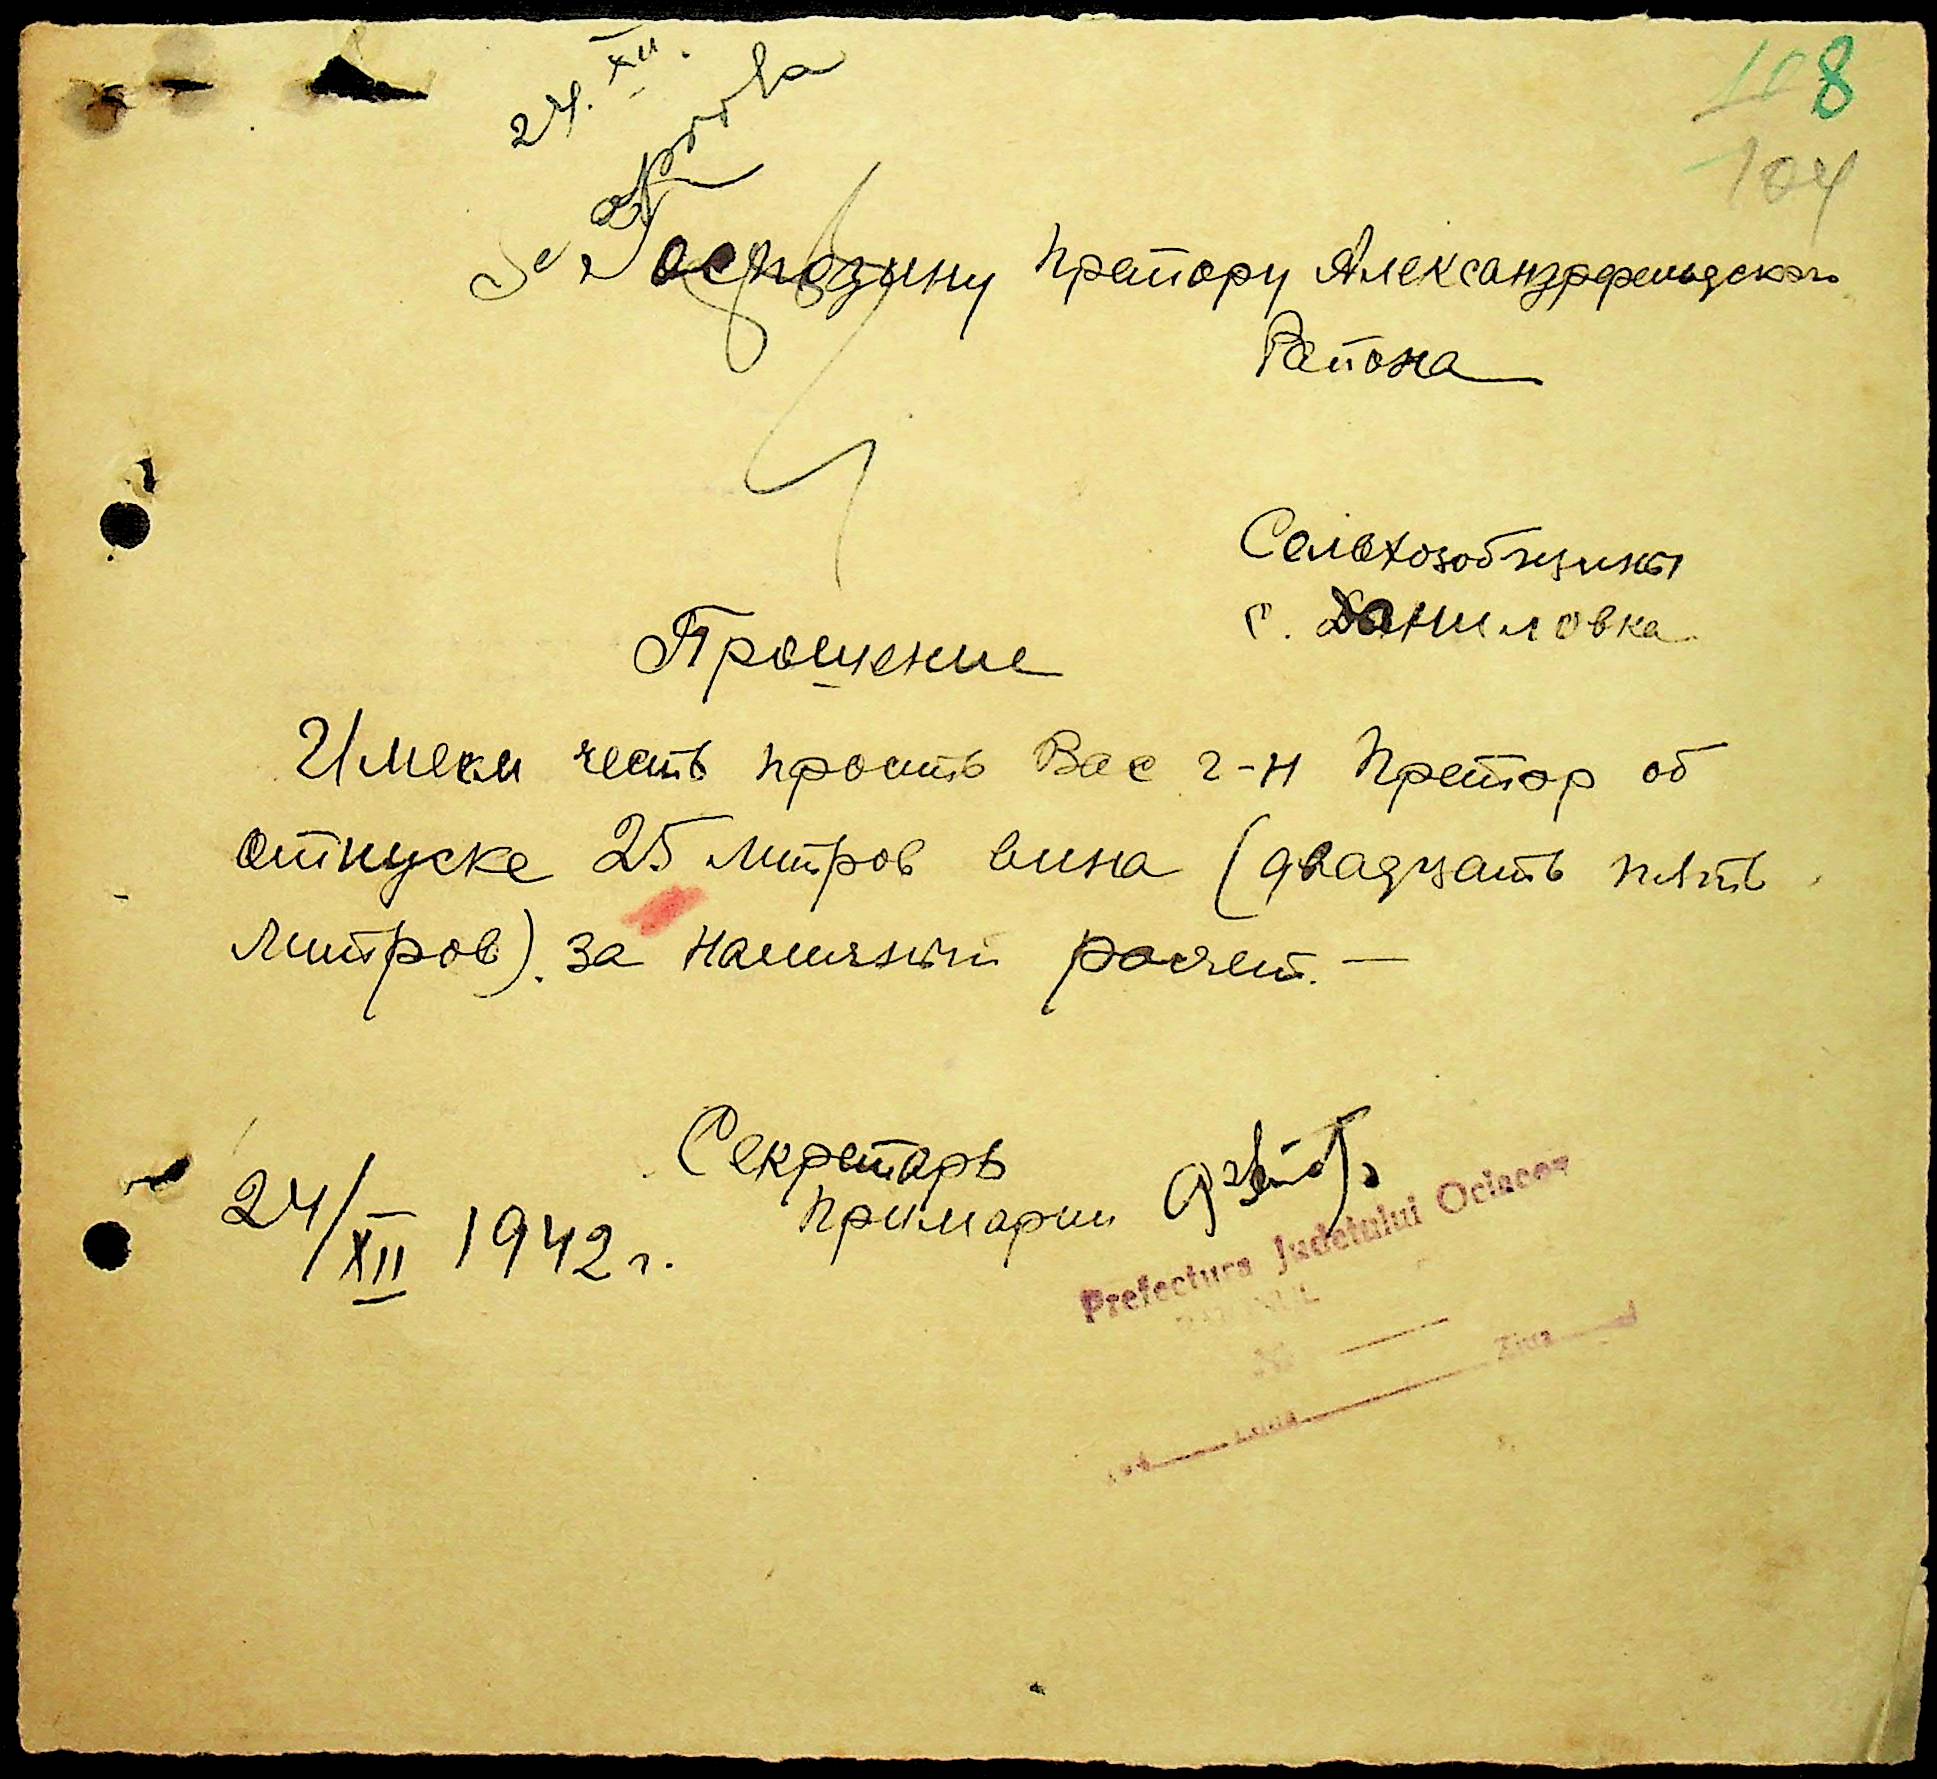 24. XII.
Se aprobă
108
104
Господину Претору Александрфельдского
Района
Сельхозобщины
с. Даниловка
Прошение
Имеем честь просить Вас г-н Претор об
отпуске 25 литров вина (двадцать пять
литров). за наличный расчет. —
Секретарь
Примарии
24/XII 1942 г.
Prefectura Judetului Ociacov
RAIONUL
№
194 Luna Ziua